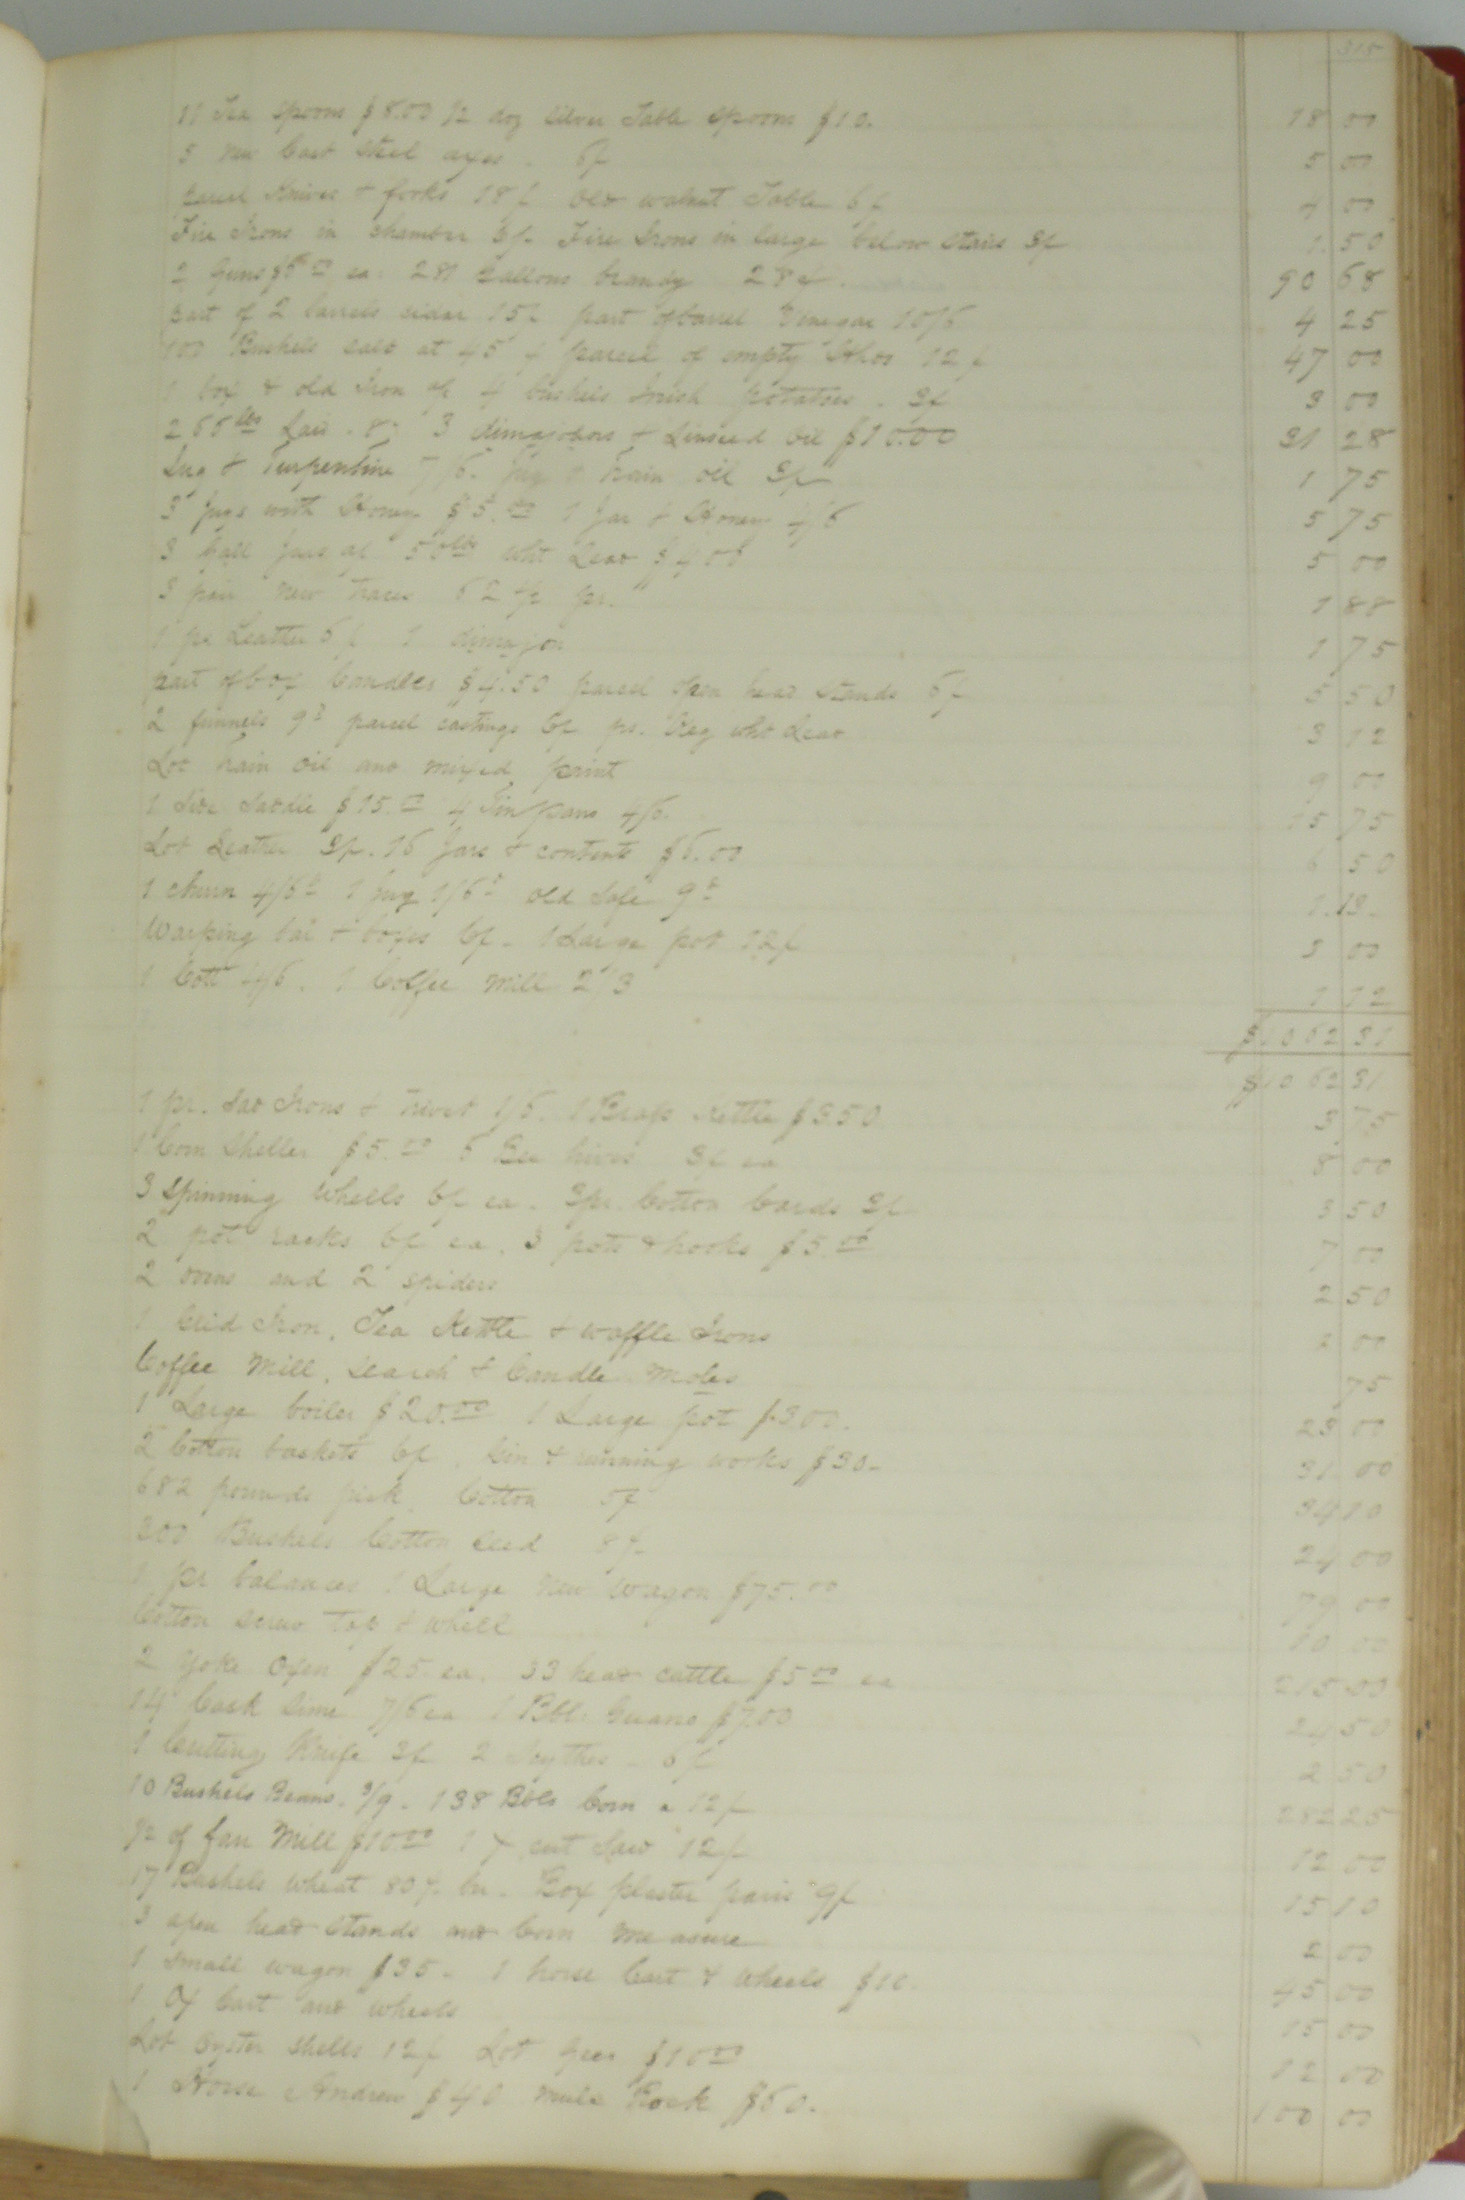 315
11 Tea Spoons $8.00 ½ doz Silver Table Spoons $10. 18 00
5 new Cast Steel axes. 6/ 5 00
parcel Knives & forks 18/ old walnut Table 6/ 4 00
Fire Irons in chamber 6/. Fire Irons in large below stairs 3/ 1.50
2 Guns $6 00 ea. 281 Gallons brandy 28¢. 90 68
part of 2 barrels cider 15/ part of barrel Vinegar 10/6 4 25
100 Bushels salt at 45¢ parcel of empty 12/ 47 00
1 box & old Iron 4 bushels Irish potatoes. 3/ 3 00
266 lbs Lard. 8¢ 3 dimajohns & Linseed Oil $10.00 31 28
Jug & Turpentine 7/6. Jug & Train oil 3/ 1 75
3 Jugs with Honey $5.00 1 Jar & Honey 4/6 5 75
3 Jars 50 lbs wht Lead $4 00 5 00
3 pair new traces 62½ pr. 1 88
1 ps Leather 6/ 1 dimajon 1 75
part of box Candles $4.50 parcel open head stands 6/ 5 50
2 funnels 9d parcel castings 6/ pr. Keg wht Lead 3 12
Lot train oil and mixed paint 9 00
1 Side Saddle $15.00 4 Tin pans 4/6. 15 75
Lot Leather 3/. 16 Jars & contents $6.00 6 50
1 churn 4/6d 1 Jug 1/6d old Safe 9d 1.13
Warping bar & boxes 6/. 1 Large pot 12/ 3 00
1 Cott 4/6. 1 Coffee Mill 2/3 1 12
$1062 31
$1062 31
1 pr. Sad Irons & trivet 1/6. 1 Brass Kettle $3 50 3.75
1 Corn Sheller $5.00 6 Bee hives 3/ ea 8 00
3 Spinning Wheels 6/ ea. 3 pr. Cotton Cards 3/ 3 50
2 pot racks 6/ ea. 3 pots & hooks $5.00 7 00
2 ovens and 2 spiders 2 50
1 Grid Iron, Tea Kettle & waffle Irons 2 00
Coffee Mill, search & Candle Moles 75
1 Large boiler $20.00 1 Large pot $3 00. 23 00
2 Cotton baskets 6/. Gin & running works $30. 31 00
682 pounds pick Cotton 5¢ 34 10
300 Bushels Cotton Seed 8¢ 24 00
1 pr balances 1 Large new wagon $75.00 79 00
Cotton screw top & wheel 10 00
2 yoke Oxen $25 ea. 33 head cattle $5 00 ea 215 00
14 Cask Lime 7/6 ea 1 Bbl. Guano $7.00 24 50
1 Cutting Knife 3/ 2 Scythes. 6/ 2 50
10 Bushels Beans. 3/9. 138 Bbls Corn a 12/ 282 25
½ of fan Mill $10 00 1 X cut Saw 12/ 12 00
17 Bushels wheat 80¢ bu. Box plaster paris 9/ 15 10
3 open head Stands and Corn measure 2 00
1 small wagon $35. 1 horse Cart & Wheels $10. 45 00
1 Ox Cart and wheels 15 00
Lot Oyster shells 12/ Lot Gear $10 00 12 00
1 Horse Andrew $40 Mule Rock $60. 100 00